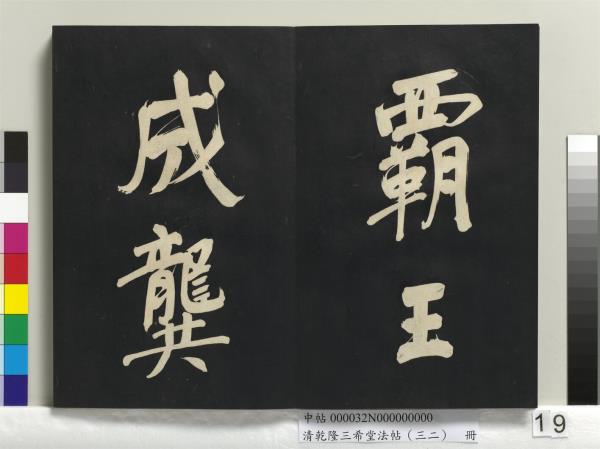 覇王
成龔
中帖 000032N000000000
清乾隆三希堂法帖（三二） 冊
19